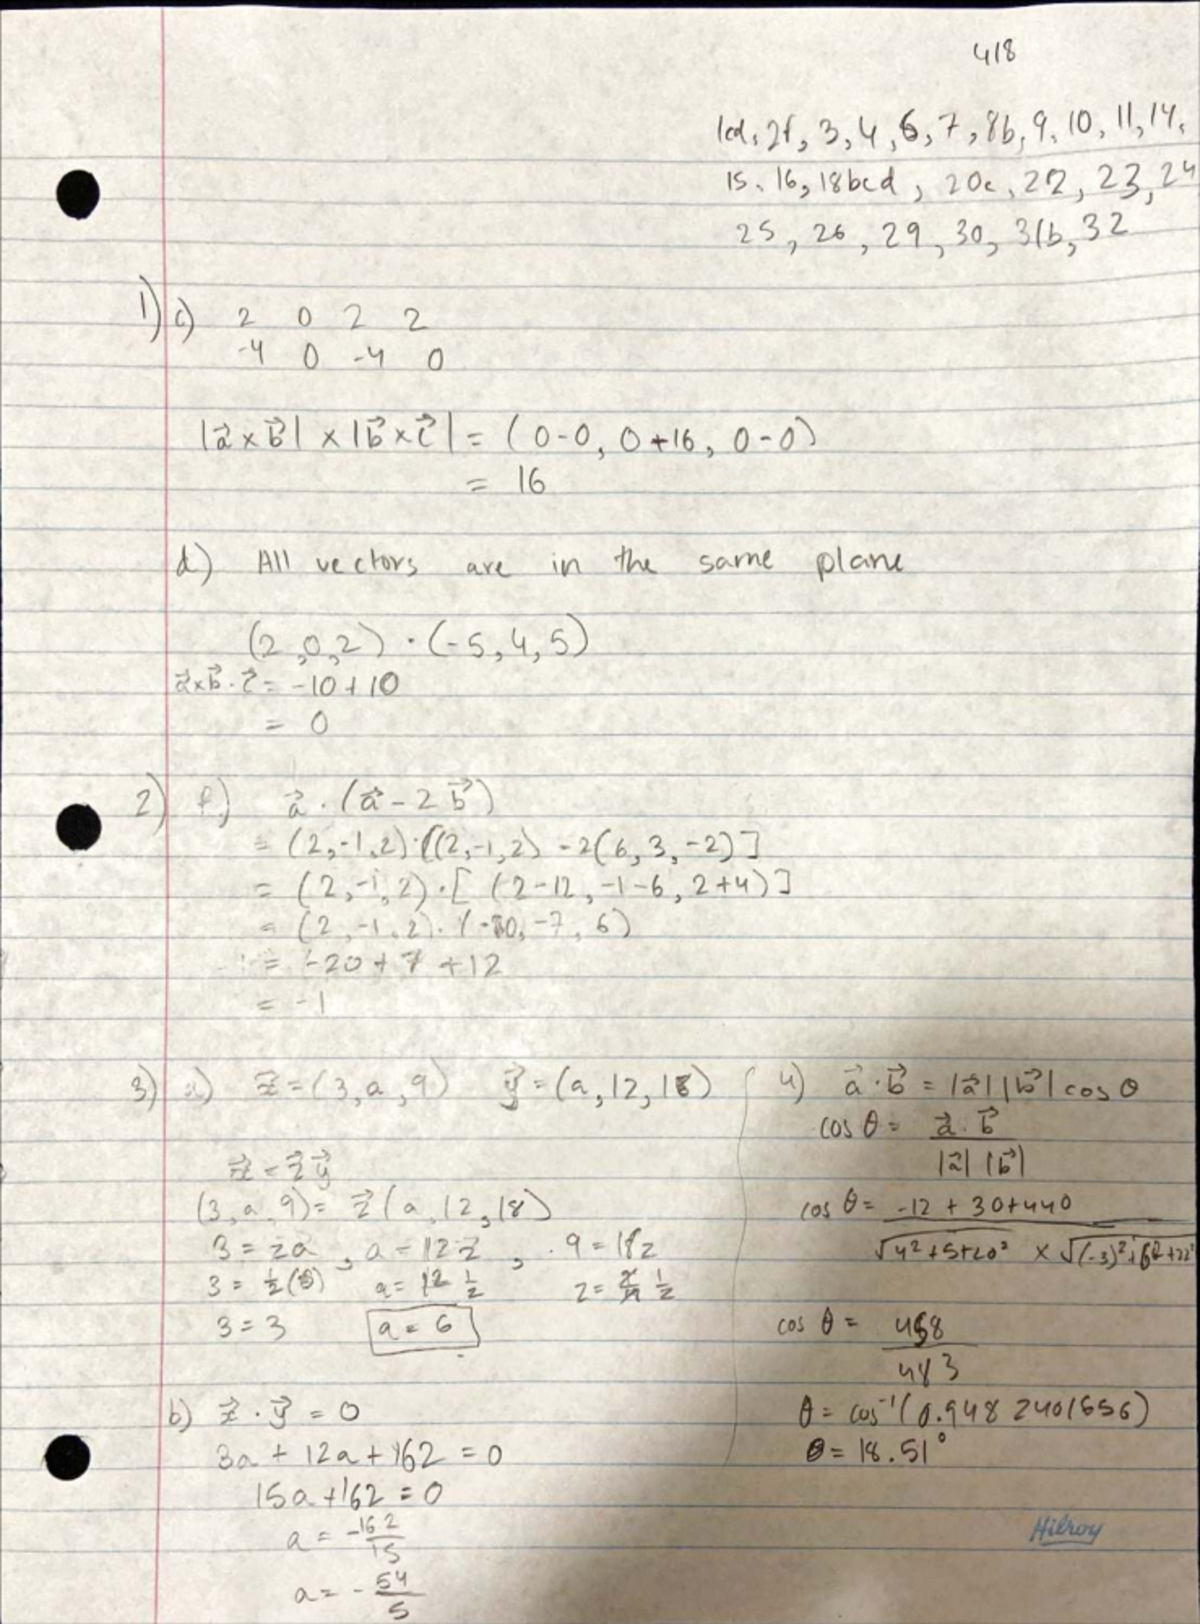 418
1cd, 2f, 3, 4, 6, 7, 8b, 9, 10, 11, 14,
15, 16, 18bcd, 20c, 22, 23, 24
25, 26, 29, 30, 31b, 32
1) c) 2 0 2 2
-4 0 -4 0
|a⃗ × b⃗| × |b⃗ × c⃗| = (0-0, 0+16, 0-0)
= 16
d) All vectors are in the same plane
(2,0,2) · (-5,4,5)
a⃗×b⃗·c⃗ = -10+10
= 0
2) f.) a⃗ · (a⃗ - 2b⃗)
= (2,-1,2)·[(2,-1,2) - 2(6,3,-2)]
= (2,-1,2)·[(2-12, -1-6, 2+4)]
= (2,-1,2)·(-10,-7,6)
= -20+7+12
= -1
3) a) x⃗ = (3,a,9) y⃗ = (a,12,18)
x⃗ = z⃗y⃗
(3,a,9) = z⃗(a,12,18)
3 = za, a = 12z, 9 = 18z
3 = ½(6) a = 12 ½ z = ½
3 = 3 a = 6
b) x⃗ · y⃗ = 0
3a + 12a + 162 = 0
15a + 162 = 0
a = -162/15
a = -54/5
4) a⃗ · b⃗ = |a⃗||b⃗| cos θ
cos θ = a⃗ · b⃗ / |a⃗||b⃗|
cos θ = -12 + 30 + 440 / √4²+5+20² × √(-3)²+6²+22²
cos θ = 458 / 483
θ = cos⁻¹(0.9482401656)
θ = 18.51°
Hilroy